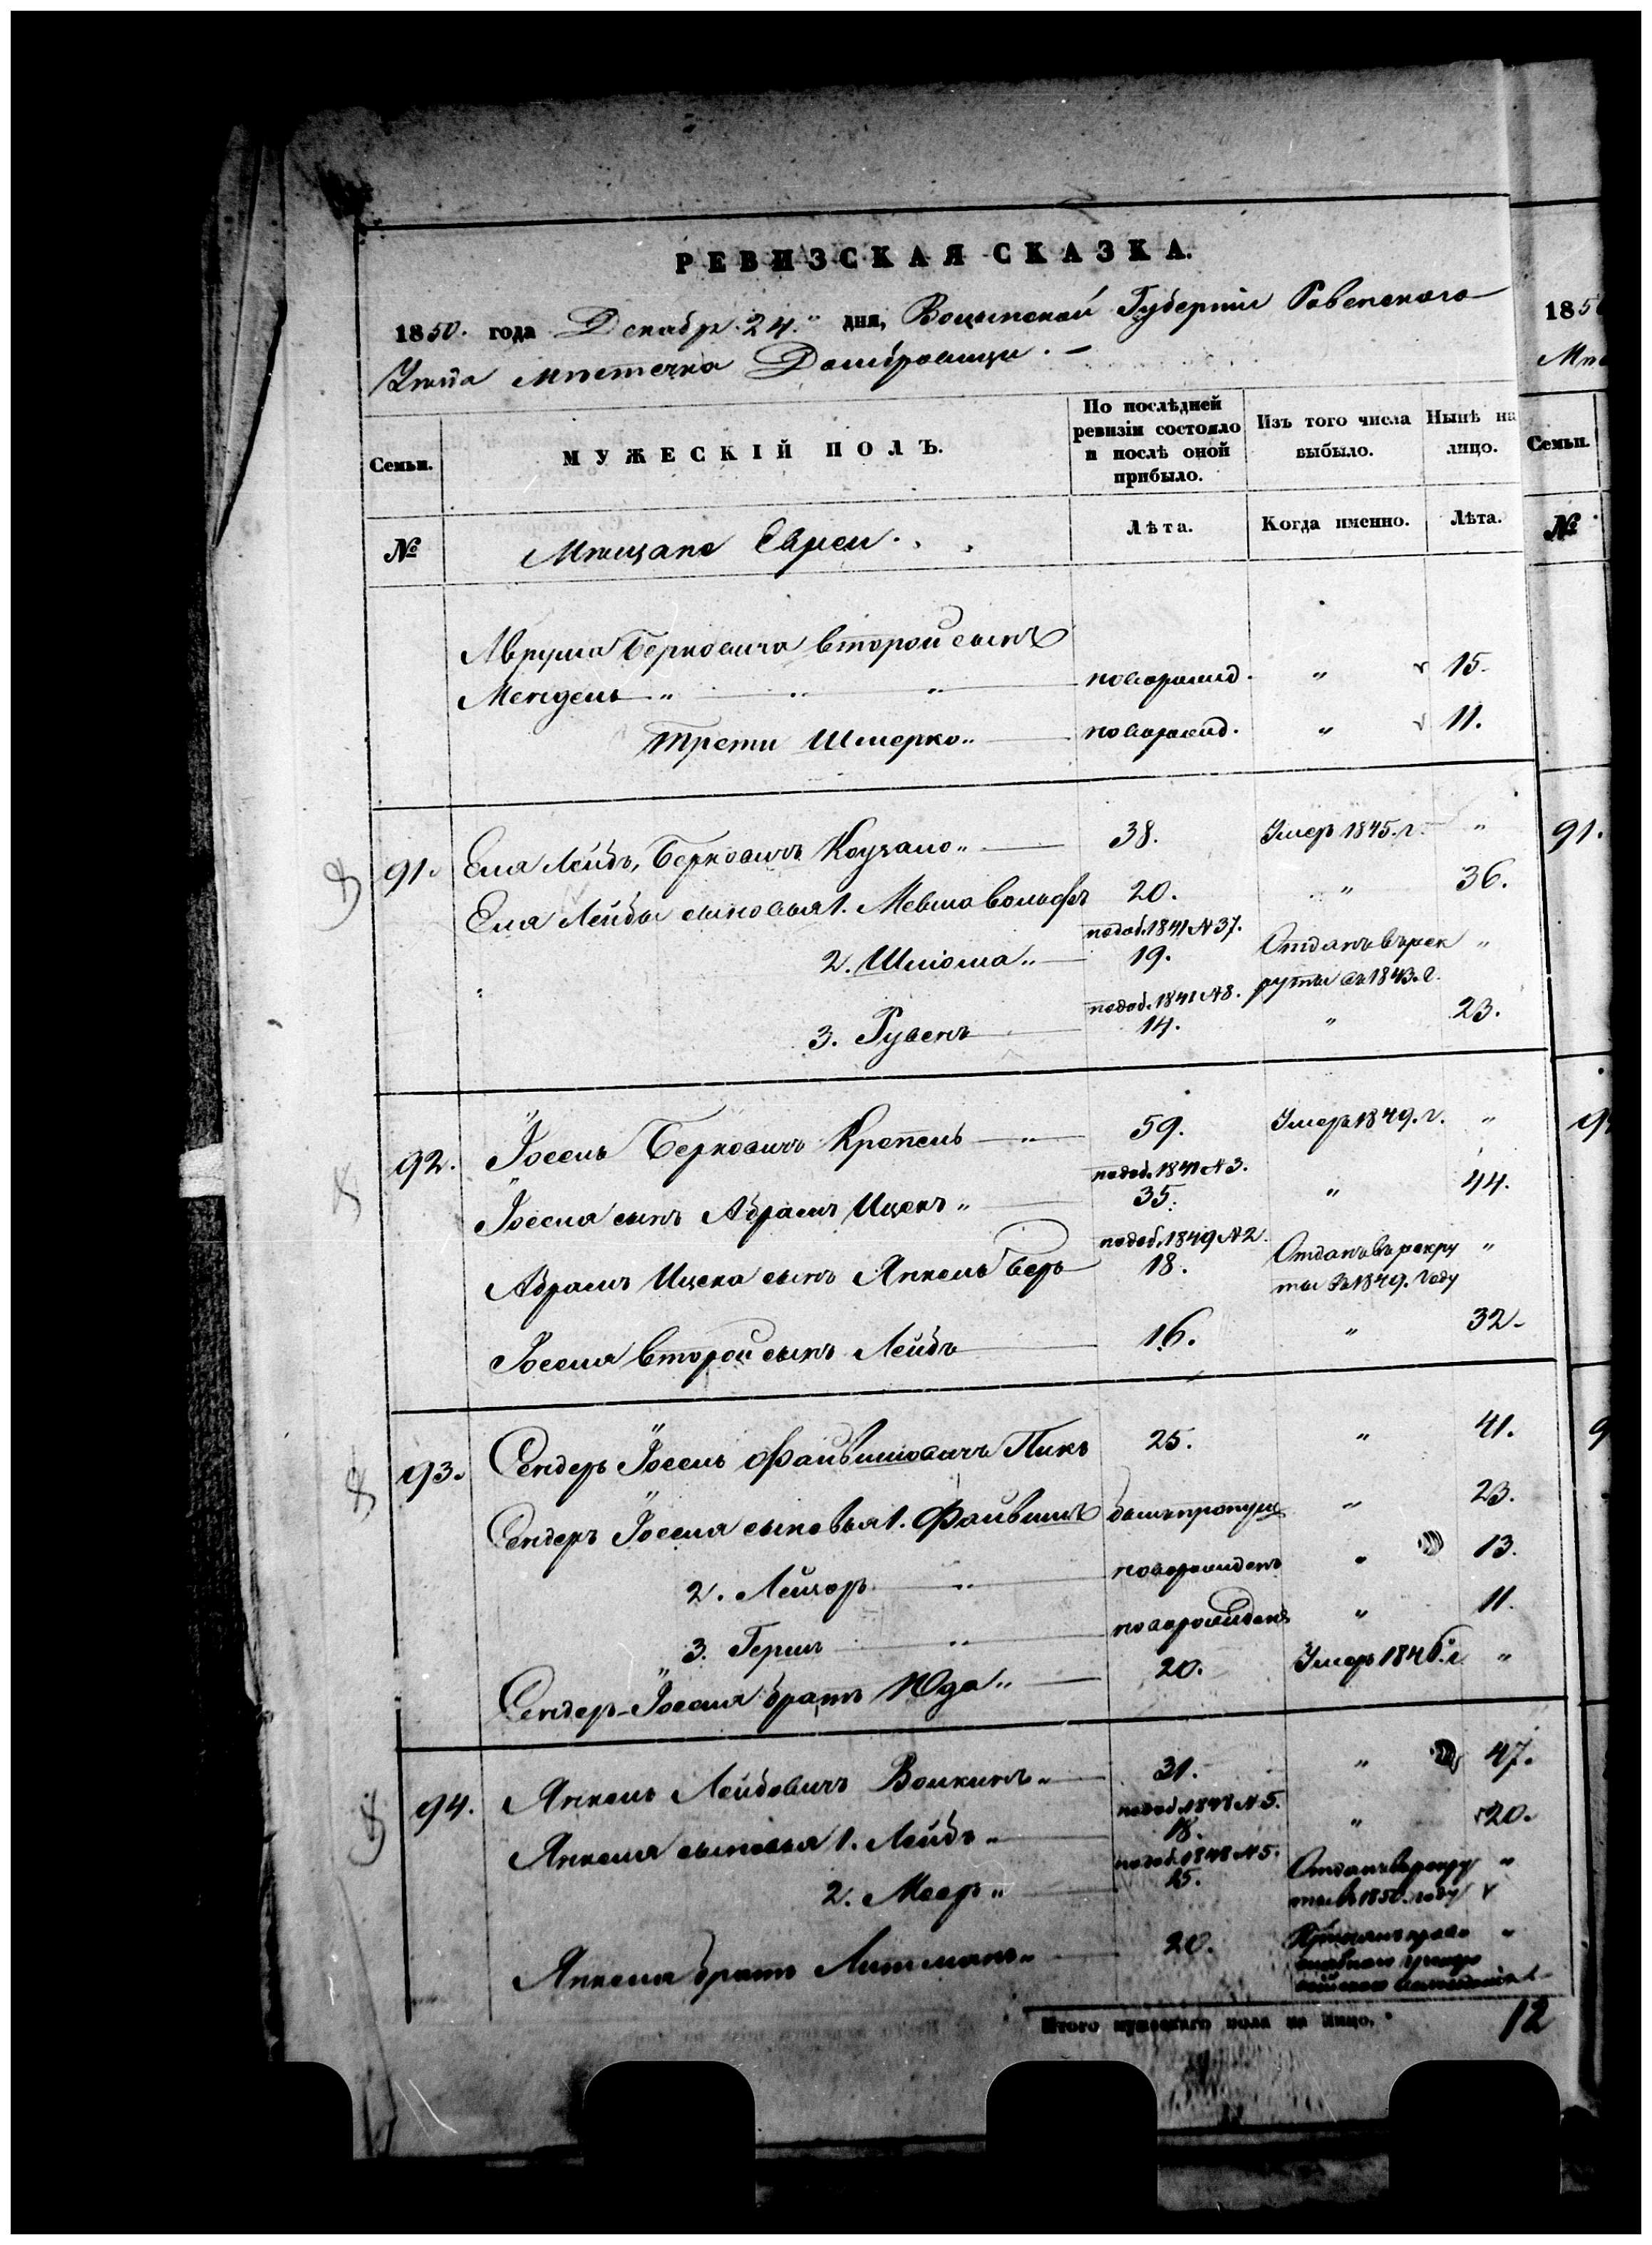 РЕВИЗСКАЯ СКАЗКА.
1850. года Декабр. 24." дня, Волынской Губерніи Ровенскаго
Уезда Местечка Домбровицы. —
Семьи.
МУЖЕСКІЙ ПОЛЪ.
По послѣдней ревизіи состояло и послѣ оной прибыло.
Изъ того числа выбыло.
Нынѣ на лицо.
№
Мещане Евреи.
Лѣта.
Когда именно.
Лѣта.
Аврума Берковича второй сынъ
Мендель " " " новорожд. " 15.
Трети Шмерко " новорожд. " 11.
91. Еля Лейбъ, Берковичъ " 38. Умеръ 1845. г. "
Еля Лейбы сыновья 1. Мевша Вольфъ 20. " 36.
подоб. 1841 N 37.
2. Шліома " 19. Отданъ въ рек "
руты въ 1843. г.
подоб. 1841 N 8.
3. Рувенъ 14. " 23.
92. Іосель Берковичъ Крепель " 59. Умеръ 1849. г. "
подоб. 1841 N 3.
Іоселя сынъ Абрамъ Ицекъ " 35. " 44.
подоб. 1849 N 2.
Абрамъ Ицека сынъ Янкель Беръ 18. Отданъ въ рекру "
ты въ 1849. году
Іоселя второй сынъ Лейба 16. " 32.
93. Сендеръ Іосель Файвишовичъ Пикъ 25. " 41.
Сендеръ Іоселя сыновья 1. Файвишъ былъ пропущ " 23.
2. Лейзор " новорожденъ " 13.
3. Герш " новорожденъ " 11.
Сендеръ-Іоселя братъ Юда " 20. Умеръ 1846. г. "
94. Янкель Лейбовичъ Волкинъ " 31. " 47.
подоб. 1848 N 5.
Янкеля сыновья 1. Лейбъ " 18. " 20.
подоб. 1848 N 5.
2. Меер " 15. Отданъ въ рекру "
ты въ 1850. году
Янкеля братъ Литманъ " 20. "
Итого мужескаго пола на лицо. 12
1850
91.
Семьи.
№